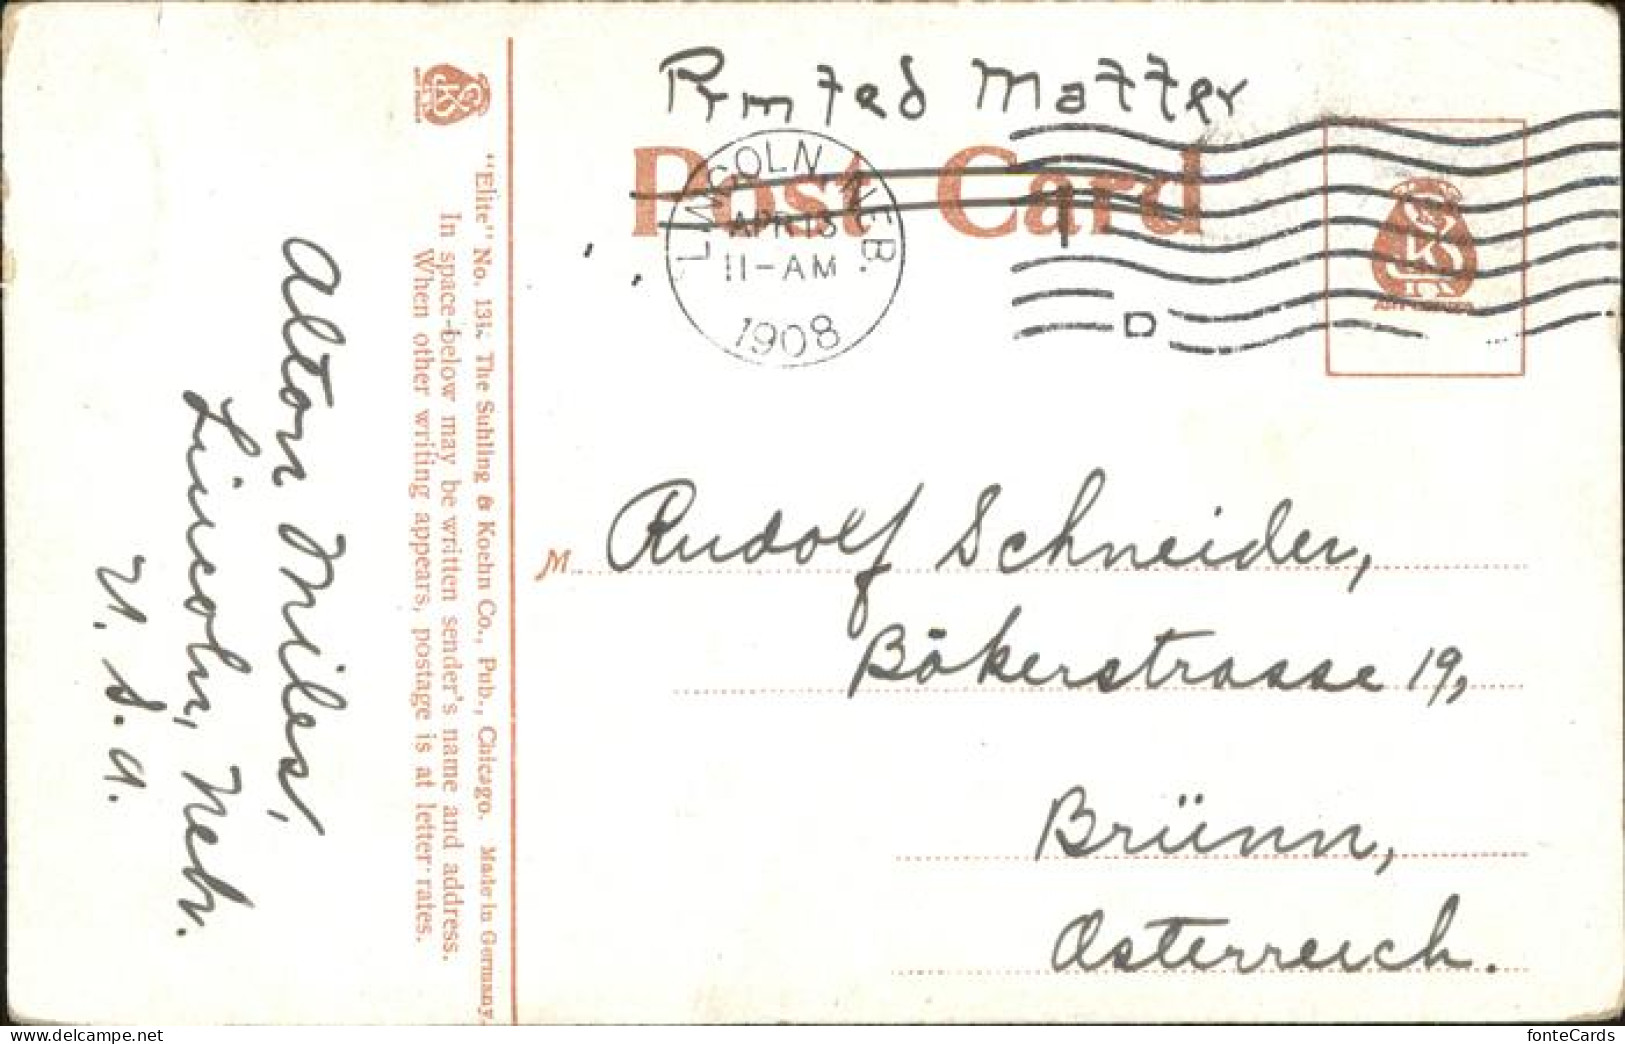 Printed Matter
Post Card
LINCOLN, NEB.
APR 13
11-AM
1908
D
"Elite" No. 131. The Suhling & Koehn Co., Pub., Chicago. Made in Germany.
In space below may be written sender's name and address.
When other writing appears, postage is at letter rates.
Alton Miles,
Lincoln, Neb.
U. S. A.
M Rudolf Schneider,
Bäkerstrasse 19,
Brünn,
Österreich.
www.delcampe.net
fonteCards